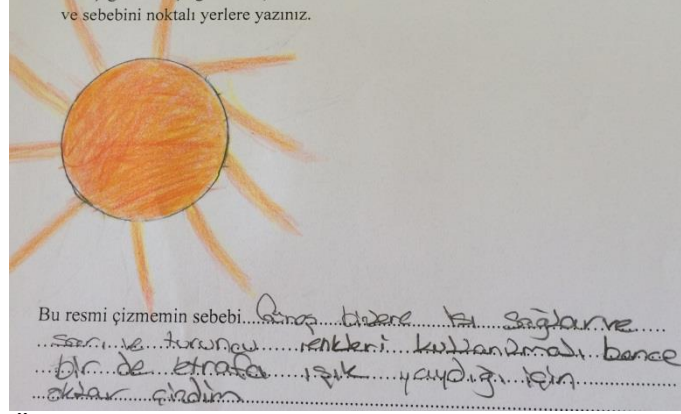 ve sebebini noktalı yerlere yazınız.
Bu resmi çizmemin sebebi...Güneş bizlere ısı sağlar ve.....
...sarı..ve..turuncu...renkleri...kullanılmalı bence
...bir...de...etrafa...ışık...yaydığı..için...
...oklar çizdim...